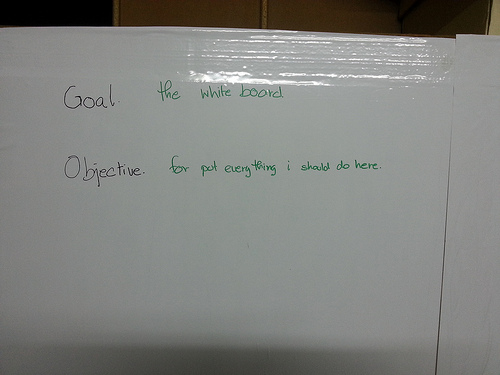 Goal. the white board.
Objective. for pot everything i should do here.